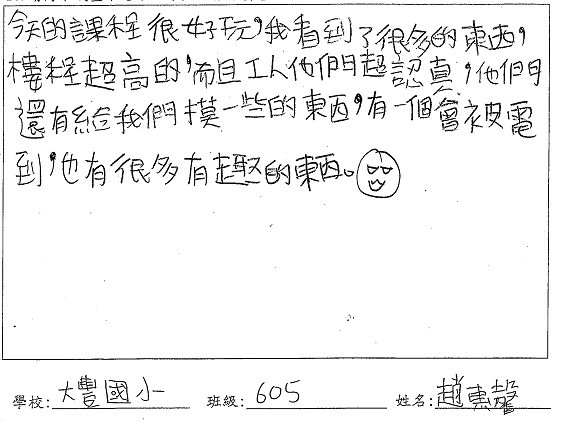 今天的課程很好玩,我看到了很多的東西,
樓程超高的,而且工人他們超認真,他們
還有給我們摸一些的東西,有一個會被電
到,也有很多有趣的東西。
學校: 大豐國小 班級: 605 姓名: 趙惠馨